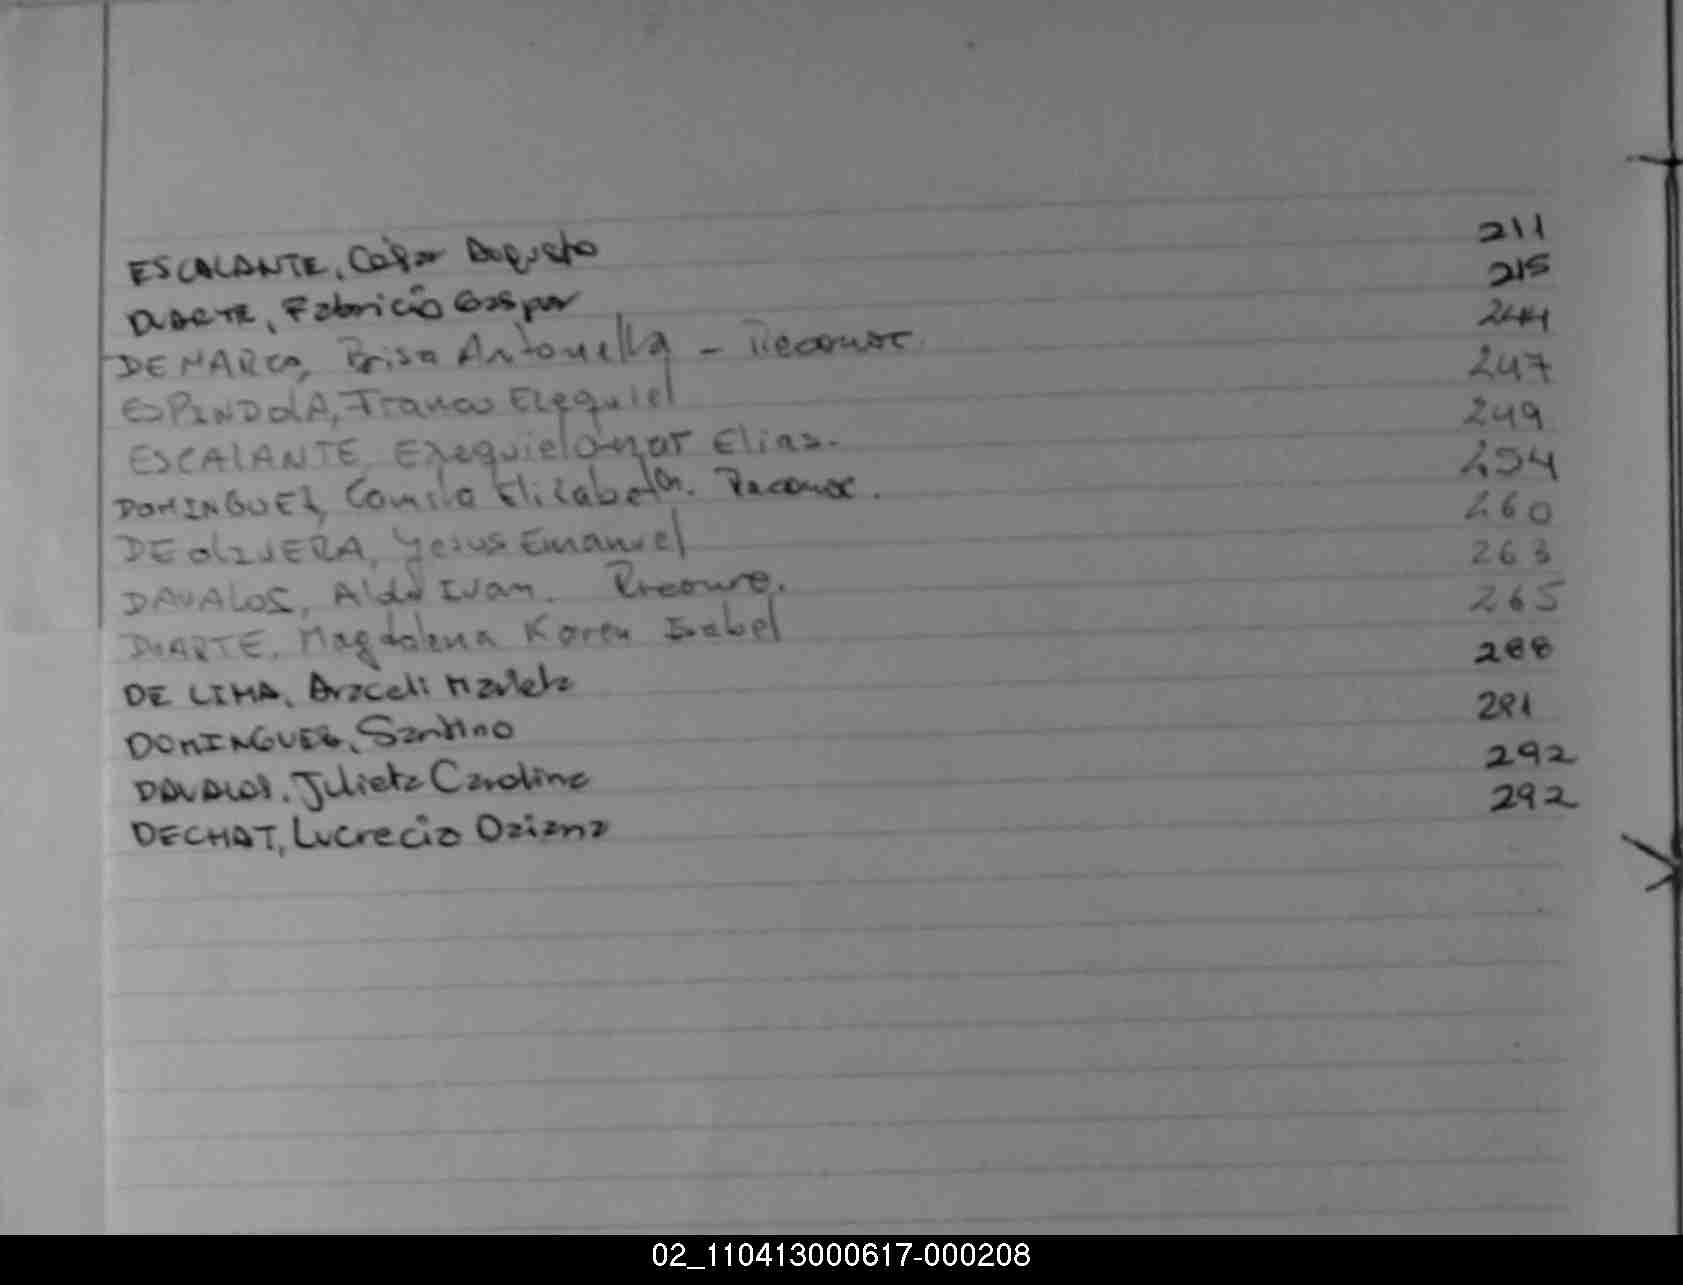 ESCALANTE, César Augusto 211
DUARTE, Fabricio Gaspar 215
DE MARCO, Brisa Antonella - Reconoc. 244
ESPINDOLA, Franco Ezequiel 247
ESCALANTE, Exequiel Omar Elias. 249
DOMINGUEZ, Camila Elizabeth. Reconoc. 254
DE OLIVERA, Yesus Emanuel 260
DAVALOS, Aldo Ivan. 263
DUARTE, Magdalena Karen Isabel 265
DE LIMA, Araceli 288
DOMINGUEZ, Santino
DAVALOS, Julieta Carolina 292
DECHAT, Lucrecia Daiana 292
02_110413000617-000208